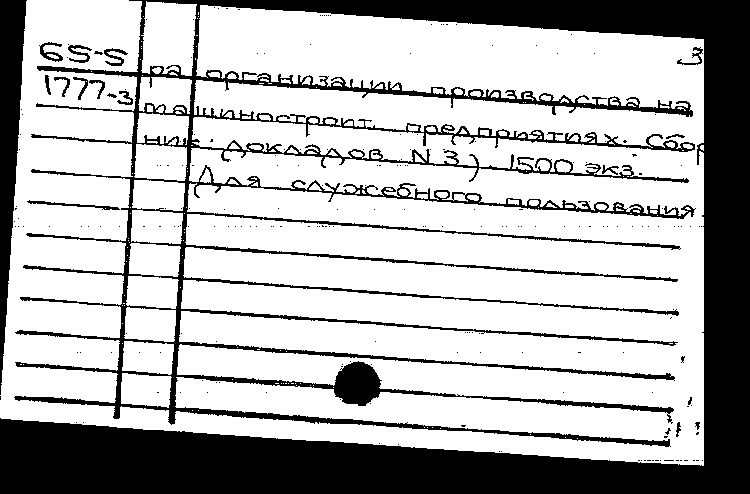 3
65-5
1777-3
ра организации производства на
машиностроит. предприятиях. Сбор
ник докладов N 3). 1500 экз.
Для служебного пользования.